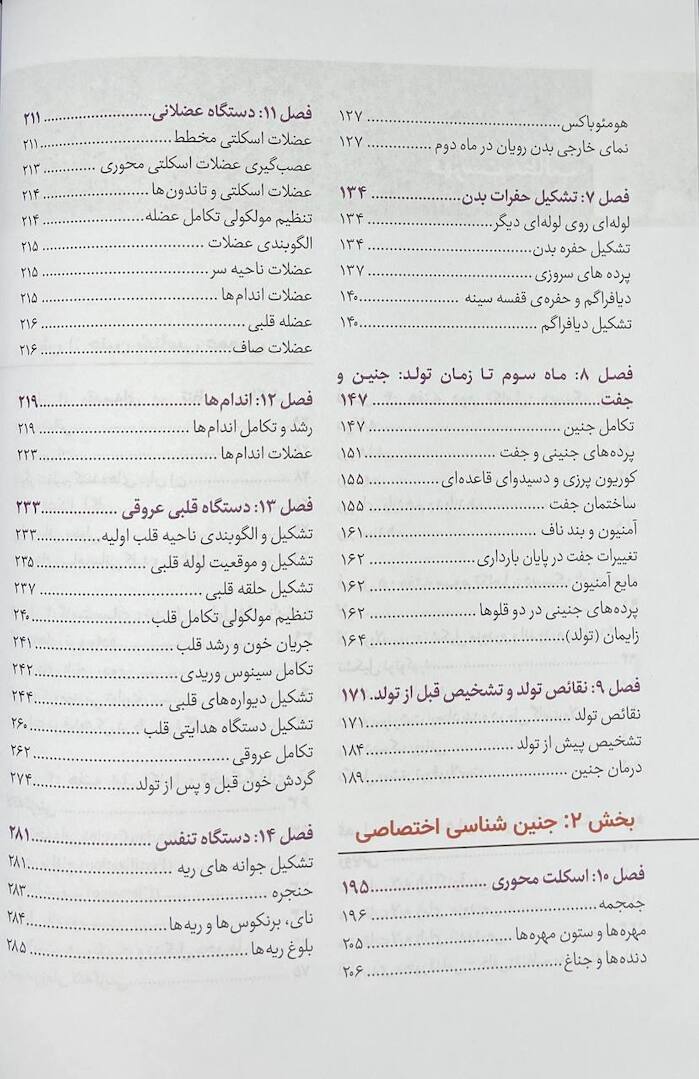 هومئوباکس ۱۲۷
نمای خارجی بدن رویان در ماه دوم ۱۲۷
فصل ۷: تشکیل حفرات بدن ۱۳۴
لوله‌ای روی لوله‌ای دیگر ۱۳۴
تشکیل حفره بدن ۱۳۴
پرده های سروزی ۱۳۷
دیافراگم و حفره‌ی قفسه سینه ۱۴۰
تشکیل دیافراگم ۱۴۰
فصل ۸: ماه سوم تا زمان تولد: جنین و
جفت ۱۴۷
تکامل جنین ۱۴۷
پرده‌های جنینی و جفت ۱۵۱
کوریون پرزی و دسیدوای قاعده‌ای ۱۵۵
ساختمان جفت ۱۵۵
آمنیون و بند ناف ۱۶۱
تغییرات جفت در پایان بارداری ۱۶۲
مایع آمنیون ۱۶۲
پرده‌های جنینی در دو قلوها ۱۶۲
زایمان (تولد) ۱۶۴
فصل ۹: نقائص تولد و تشخیص قبل از تولد. ۱۷۱
نقائص تولد ۱۷۱
تشخیص پیش از تولد ۱۸۴
درمان جنین ۱۸۹
بخش ۲: جنین شناسی اختصاصی
فصل ۱۰: اسکلت محوری ۱۹۵
جمجمه ۱۹۶
مهره‌ها و ستون مهره‌ها ۲۰۵
دنده‌ها و جناغ ۲۰۶
فصل ۱۱: دستگاه عضلانی ۲۱۱
عضلات اسکلتی مخطط ۲۱۱
عصب‌گیری عضلات اسکلتی محوری ۲۱۳
عضلات اسکلتی و تاندون‌ها ۲۱۴
تنظیم مولکولی تکامل عضله ۲۱۴
الگوبندی عضلات ۲۱۵
عضلات ناحیه سر ۲۱۵
عضلات اندام‌ها ۲۱۵
عضله قلبی ۲۱۶
عضلات صاف ۲۱۶
فصل ۱۲: اندام‌ها ۲۱۹
رشد و تکامل اندام‌ها ۲۱۹
عضلات اندام‌ها ۲۲۳
فصل ۱۳: دستگاه قلبی عروقی ۲۳۳
تشکیل و الگوبندی ناحیه قلب اولیه ۲۳۳
تشکیل و موقعیت لوله قلبی ۲۳۵
تشکیل حلقه قلبی ۲۳۷
تنظیم مولکولی تکامل قلب ۲۴۰
جریان خون و رشد قلب ۲۴۱
تکامل سینوس وریدی ۲۴۲
تشکیل دیواره‌های قلبی ۲۴۴
تشکیل دستگاه هدایتی قلب ۲۶۰
تکامل عروقی ۲۶۲
گردش خون قبل و پس از تولد ۲۷۴
فصل ۱۴: دستگاه تنفس ۲۸۱
تشکیل جوانه های ریه ۲۸۱
حنجره ۲۸۳
نای، برنکوس‌ها و ریه‌ها ۲۸۴
بلوغ ریه‌ها ۲۸۵